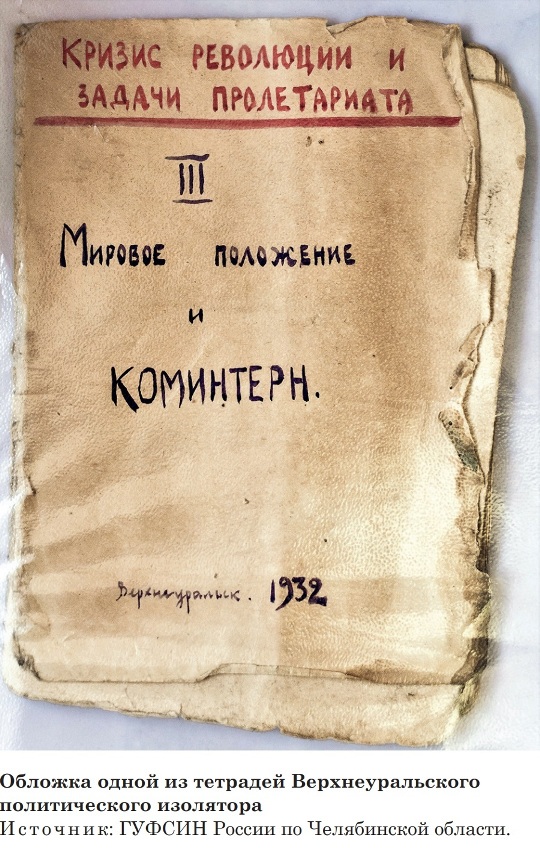 КРИЗИС РЕВОЛЮЦИИ И
ЗАДАЧИ ПРОЛЕТАРИАТА
III
МИРОВОЕ ПОЛОЖЕНИЕ
И
КОМИНТЕРН.
Верхнеуральск. 1932
Обложка одной из тетрадей Верхнеуральского
политического изолятора
Источник: ГУФСИН России по Челябинской области.